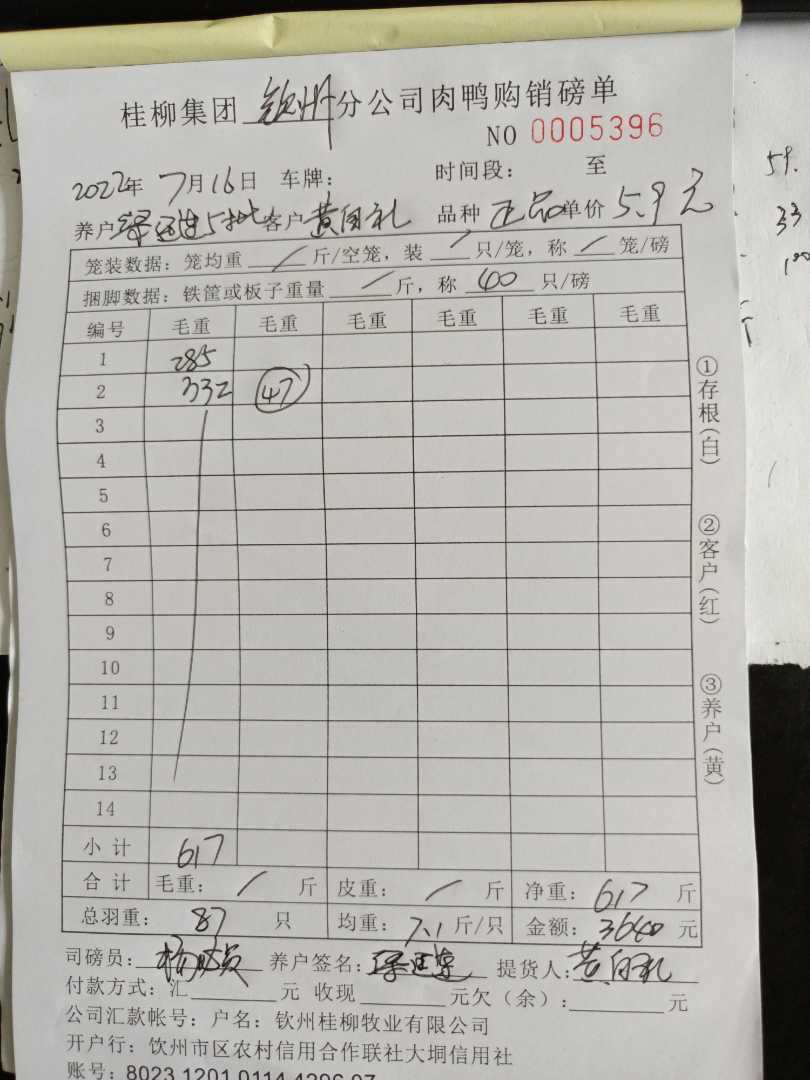 桂柳集团 钦州 分公司肉鸭购销磅单
NO 0005396
2022年 7月16日 车牌： 时间段： 至
养户 5批 客户 黄自礼 品种 正品 单价 5.9元
笼装数据：笼均重 / 斤/空笼，装 / 只/笼，称 / 笼/磅
捆脚数据：铁筐或板子重量 / 斤，称 40 只/磅
编号 毛重 毛重 毛重 毛重 毛重 毛重
1 285
2 332 47
3
4
5
6
7
8
9
10
11
12
13
14
小计 617
合计 毛重： / 斤 皮重： / 斤 净重：617 斤
总羽重： 87 只 均重：7.1 斤/只 金额：3640 元
司磅员： 养户签名： 提货人：黄自礼
付款方式：汇 元 收现 元欠（余）： 元
公司汇款帐号：户名：钦州桂柳牧业有限公司
开户行：钦州市区农村信用合作联社大垌信用社
账号：8023 1201 0114 4296 07
①存根（白）
②客户（红）
③养户（黄）
59.
33
100
斤